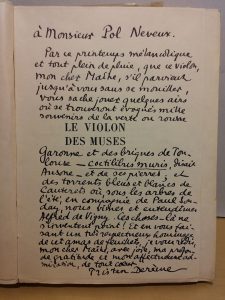 à Monsieur Pol Neveux.
Par ce printemps mélancolique
et tout plein de pluie, que ce violon,
mon cher Maître, s'il parvient
jusqu'à vous sans se mouiller,
vous sache jouer quelques airs
où se trouvent évoqués mille
souvenirs de la verte ou rousse
LE VIOLON
DES MUSES
Garonne et des briques de Tou-
louse — coctilibus muris, disait
Ausone — et de ses pierres; et
des torrents bleus et blancs de
Cauterets où sous les arbres de
l'été, en compagnie de Paul
nous vîmes et entendîmes
Alfred de Vigny. Les choses-là ne
s'inventent point! Et en vous fai-
sant un très respectueux hommage
de cet amas de feuillets, je vous redis,
mon cher Maître, avec joie, ma profon-
de gratitude et mon affectueuse ad-
miration, de tout cœur.
Tristan Derème